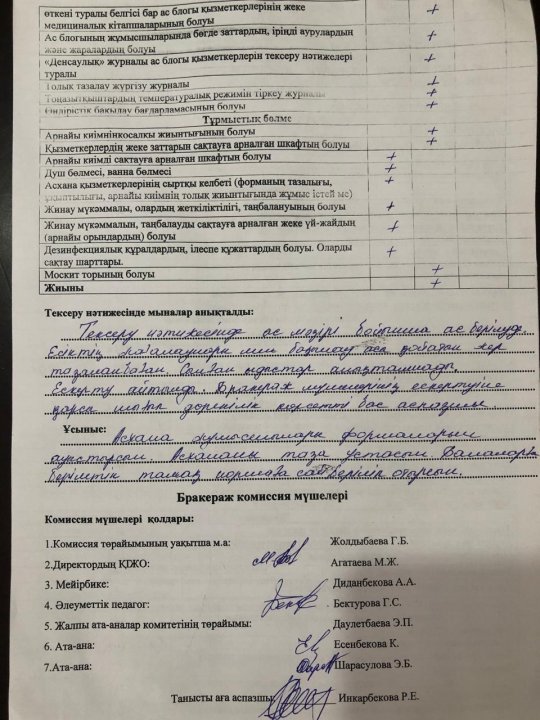 өткені туралы белгісі бар ас блогы қызметкерлерінің жеке
медициналық кітапшаларының болуы +
Ас блогының жұмысшыларында бөгде заттардың, іріңді аурулардың
және жаралардың болуы +
«Денсаулық» журналы ас блогы қызметкерлерін тексеру нәтижелері
туралы +
Толық тазалау жүргізу журналы +
Тоңазытқыштардың температуралық режимін тіркеу журналы +
Өндірістік бақылау бағдарламасының болуы +
Тұрмыстық бөлме
Арнайы киімнің қосалқы жиынтығының болуы +
Қызметкерлердің жеке заттарын сақтауға арналған шкафтың болуы +
Арнайы киімді сақтауға арналған шкафтың болуы +
Душ бөлмесі, ванна бөлмесі +
Асхана қызметкерлерінің сыртқы келбеті (форманың тазалығы,
ұқыптылығы, арнайы киімнің толық жиынтығында жұмыс істей ме) +
Жинау мүкәммалы, олардың жеткіліктілігі, таңбалануының болуы +
Жинау мүкәммалын, таңбалауды сақтауға арналған жеке үй-жайдың
(арнайы орындардың) болуы +
Дезинфекциялық құралдардың, ілеспе құжаттардың болуы. Оларды
сақтау шарттары. +
Москит торының болуы +
Жиыны +
Тексеру нәтижесінде мыналар анықталды:
Тексеру нәтижесінде ас мәзірі бойынша ас берілуде
Есіктің
тазаланбаған.
Ескерту айтылды. Бракераж мүшелерінің ескертуіне
қарсы шығып
Ұсыныс:
Асхана жұмысшылары формаларын
ауыстырсын. Асхананы таза ұстасын. Балаларға
берілетін тамақ нормаға сай беріліп отырсын.
Бракераж комиссия мүшелері
Комиссия мүшелері қолдары:
1.Комиссия төрайымының уақытша м.а: Жолдыбаева Г.Б.
2.Директордың ҚІЖО: Агатаева М.Ж.
3. Мейірбике: Диданбекова А.А.
4. Әлеуметтік педагог: Бектурова Г.С.
5. Жалпы ата-аналар комитетінің төрайымы: Даулетбаева Э.П.
6. Ата-ана: Есенбекова К.
7.Ата-ана: Шарасулова Э.Б.
Танысты аға аспазшы: Инкарбекова Р.Е.